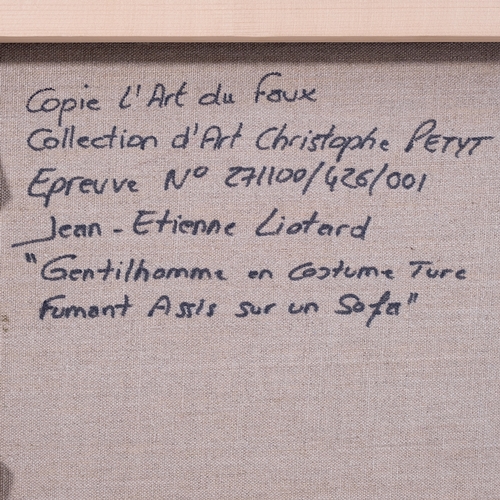 Copie l'Art du Faux
Collection d'Art Christophe PETYT
Epreuve N° 271100/426/001
Jean-Etienne Liotard
"Gentilhomme en Costume Turc
Fumant Assis sur un Sofa"